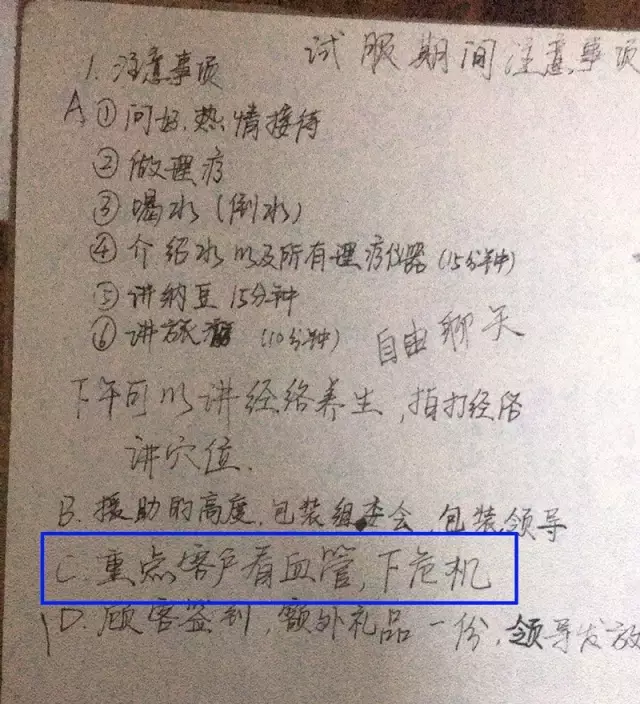 试服期间注意事项
1. 注意事项
A ① 问好,热情接待
② 做理疗
③ 喝水(倒水)
④ 介绍水以及所有理疗仪器(15分钟)
⑤ 讲纳豆 15分钟
⑥ 讲旅 (10分钟) 自由聊天
下午可以讲经络养生,拍打经络
讲穴位.
B. 援助的高度,包装组委会,包装领导
C. 重点客户看血管,下危机
D. 顾客签到 额外礼品一份,领导发放